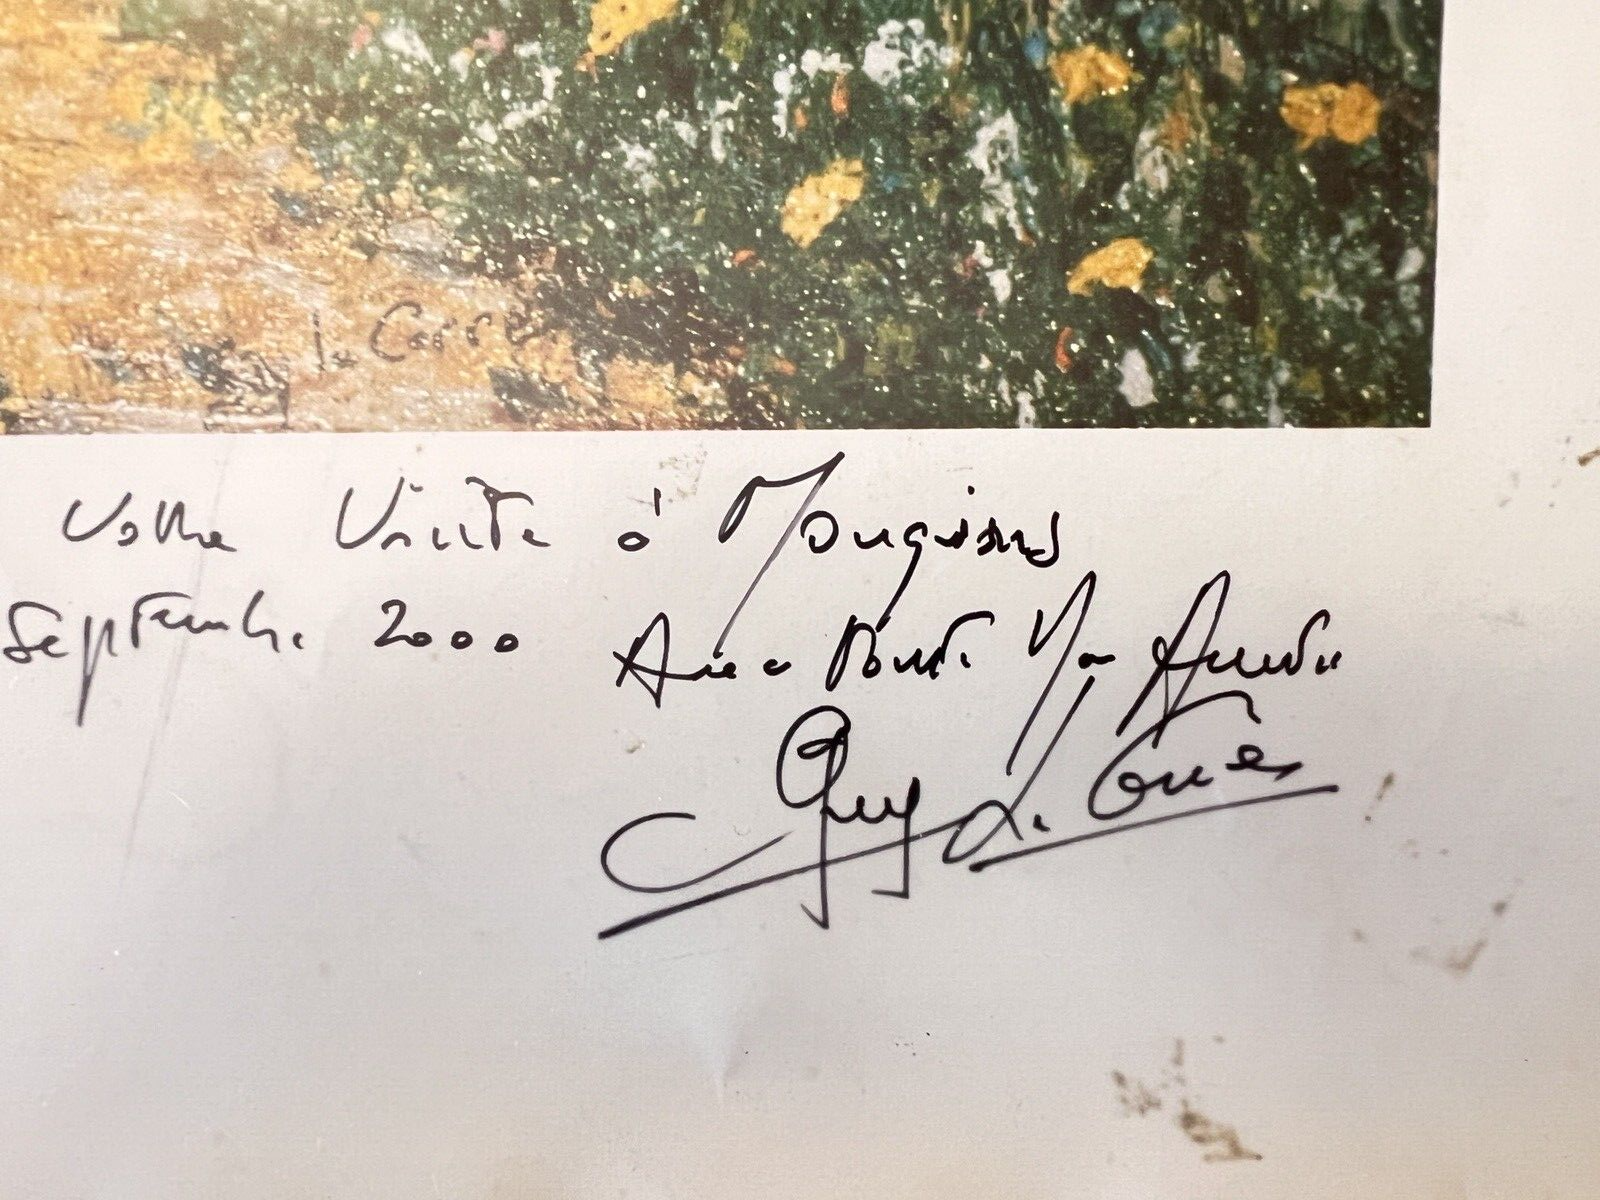 Le Corre
Votre Visite à Mougins
Septembre 2000
Avec toute Mon Amitié
Guy Le Corre